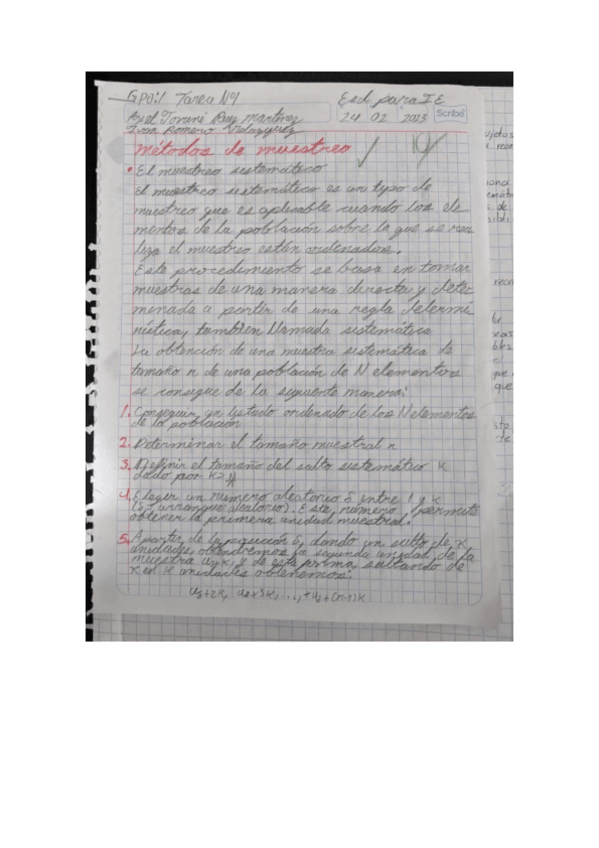 Gpo:1 Tarea N°1 Esd para IE
Axel Ruiz Martinez 24 02 2023 Scribd
Ivan Romero Velazquez
métodos de muestreo
• El muestreo sistemático
El muestreo sistemático es un tipo de
muestreo que es aplicable cuando los ele
mentos de la población sobre la que se rea
liza el muestreo están ordenados.
Este procedimiento se basa en tomar
muestras de una manera directa y deter
minada a partir de una regla determi
nística, tambien llamada sistemática
La obtención de una muestra sistemática de
tamaño n de una población de N elementos
se consigue de la siguiente manera:
1. Conseguir un listado ordenado de los N elementos
de la población
2. Determinar el tamaño muestral n
3. Definir el tamaño del salto sistemático K
dado por K=
4. Elegir un numero aleatorio s entre 1 y K
(s= arranque aleatorio). Este numero permite
obtener la primera unidad muestral.
5. A partir de la posición s, dando un salto de K
unidades, obtendremos la segunda unidad de la
muestra y de esta forma, saltando de
K en K unidades obtenemos: